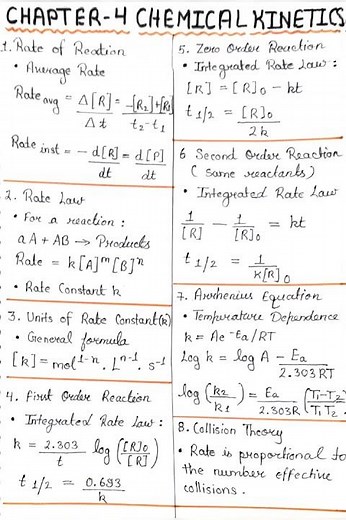 CHAPTER-4 CHEMICAL KINETICS
1. Rate of Reaction
• Average Rate
Rate avg = Δ[R] / Δt = -[R₂]+[R₁] / t₂-t₁
Rate inst = - d[R] / dt = d[P] / dt
2. Rate Law
• For a reaction :
aA + AB → Products
Rate = k[A]^m [B]^n
• Rate Constant k
3. Units of Rate Constant(k)
• General formula
[k] = mol^1-n . L^n-1 . s^-1
4. First Order Reaction
• Integrated Rate Law :
k = 2.303 / t log ([R]₀ / [R])
t 1/2 = 0.693 / k
5. Zero Order Reaction
• Integrated Rate Law :
[R] = [R]₀ - kt
t 1/2 = [R]₀ / 2k
6 Second Order Reaction
( same reactants )
• Integrated Rate Law
1 / [R] - 1 / [R]₀ = kt
t 1/2 = 1 / k[R]₀
7. Arrhenius Equation
• Temperature Dependence
k = Ae^-Ea/RT
Log k = log A - Ea / 2.303 RT
log (k₂ / k₁) = Ea / 2.303R (T₁-T₂ / T₁T₂
8. Collision Theory
• Rate is proportional to
the number effective
collisions .